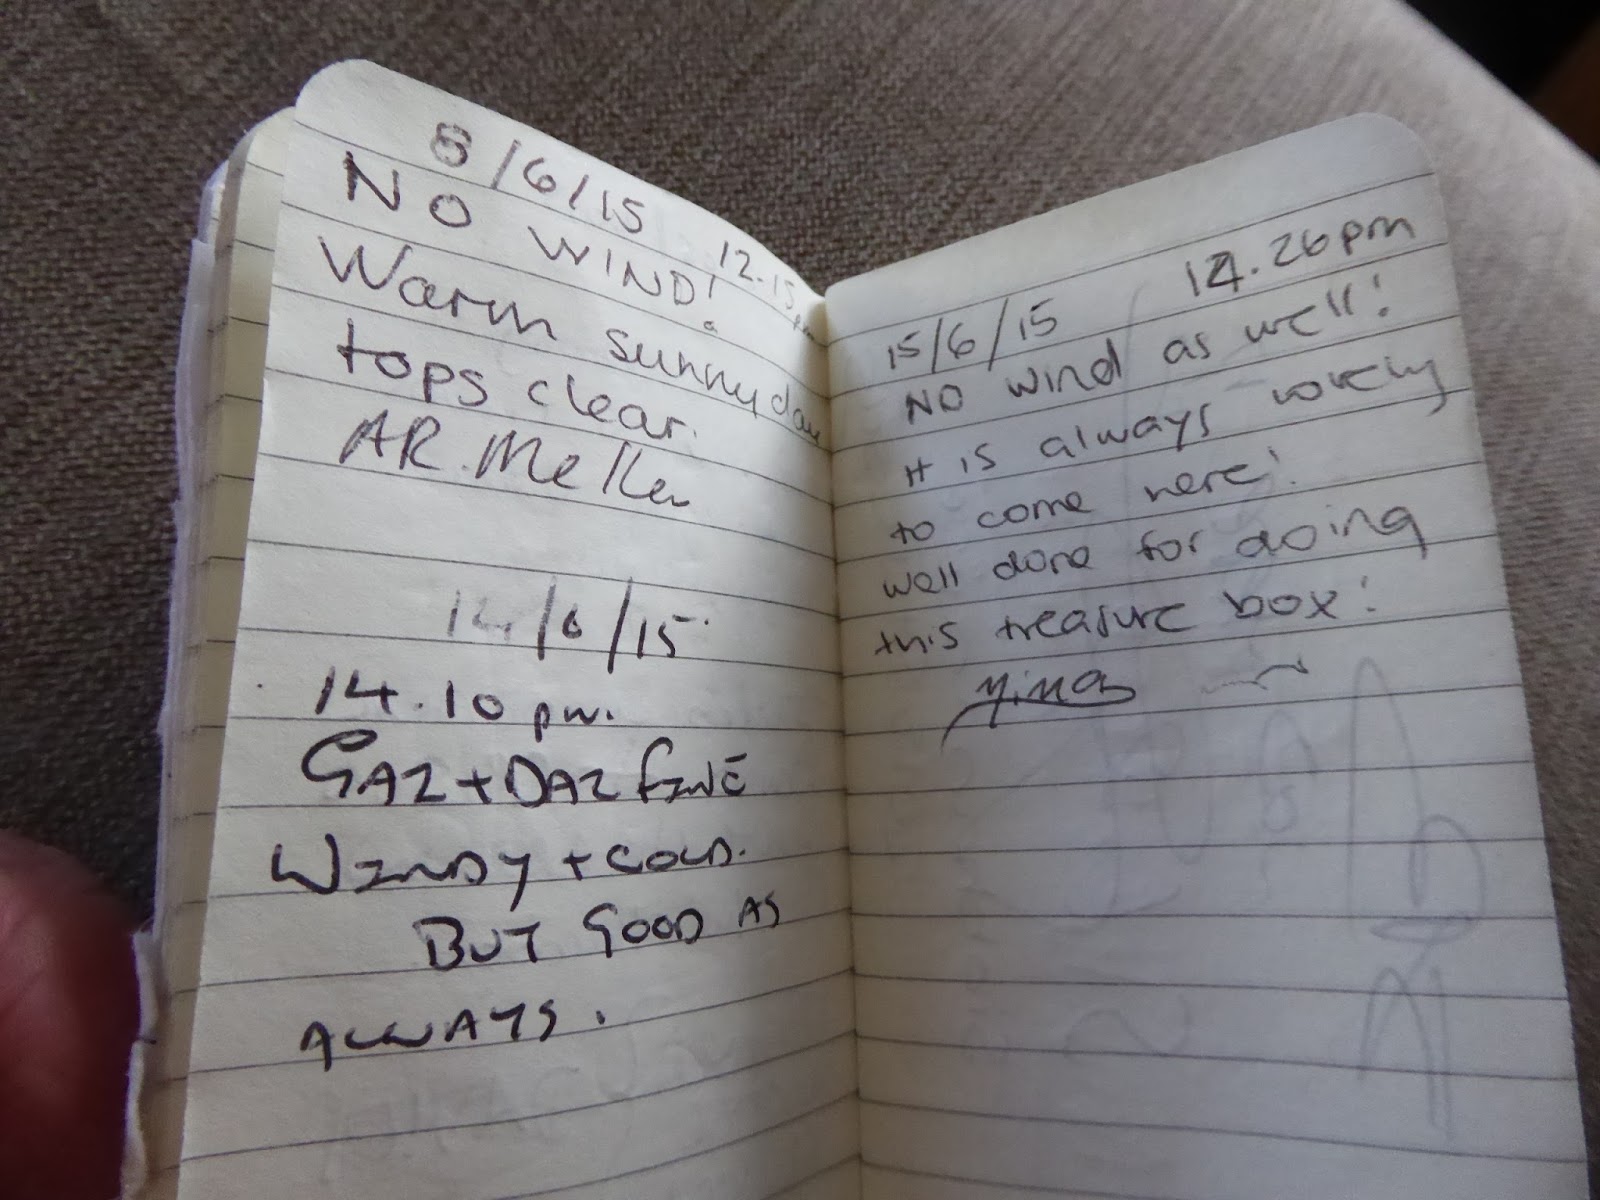 8/6/15 12.15 pm
NO WIND!
Warm sunny day
tops clear.
AR. Meller
14/6/15.
14.10 pm.
GAZ + DAZ FINE
WINDY + COLD.
BUT GOOD AS
ALWAYS.
15/6/15 14.26pm
NO wind as well!
It is always lovely
to come here!
well done for doing
this treasure box!